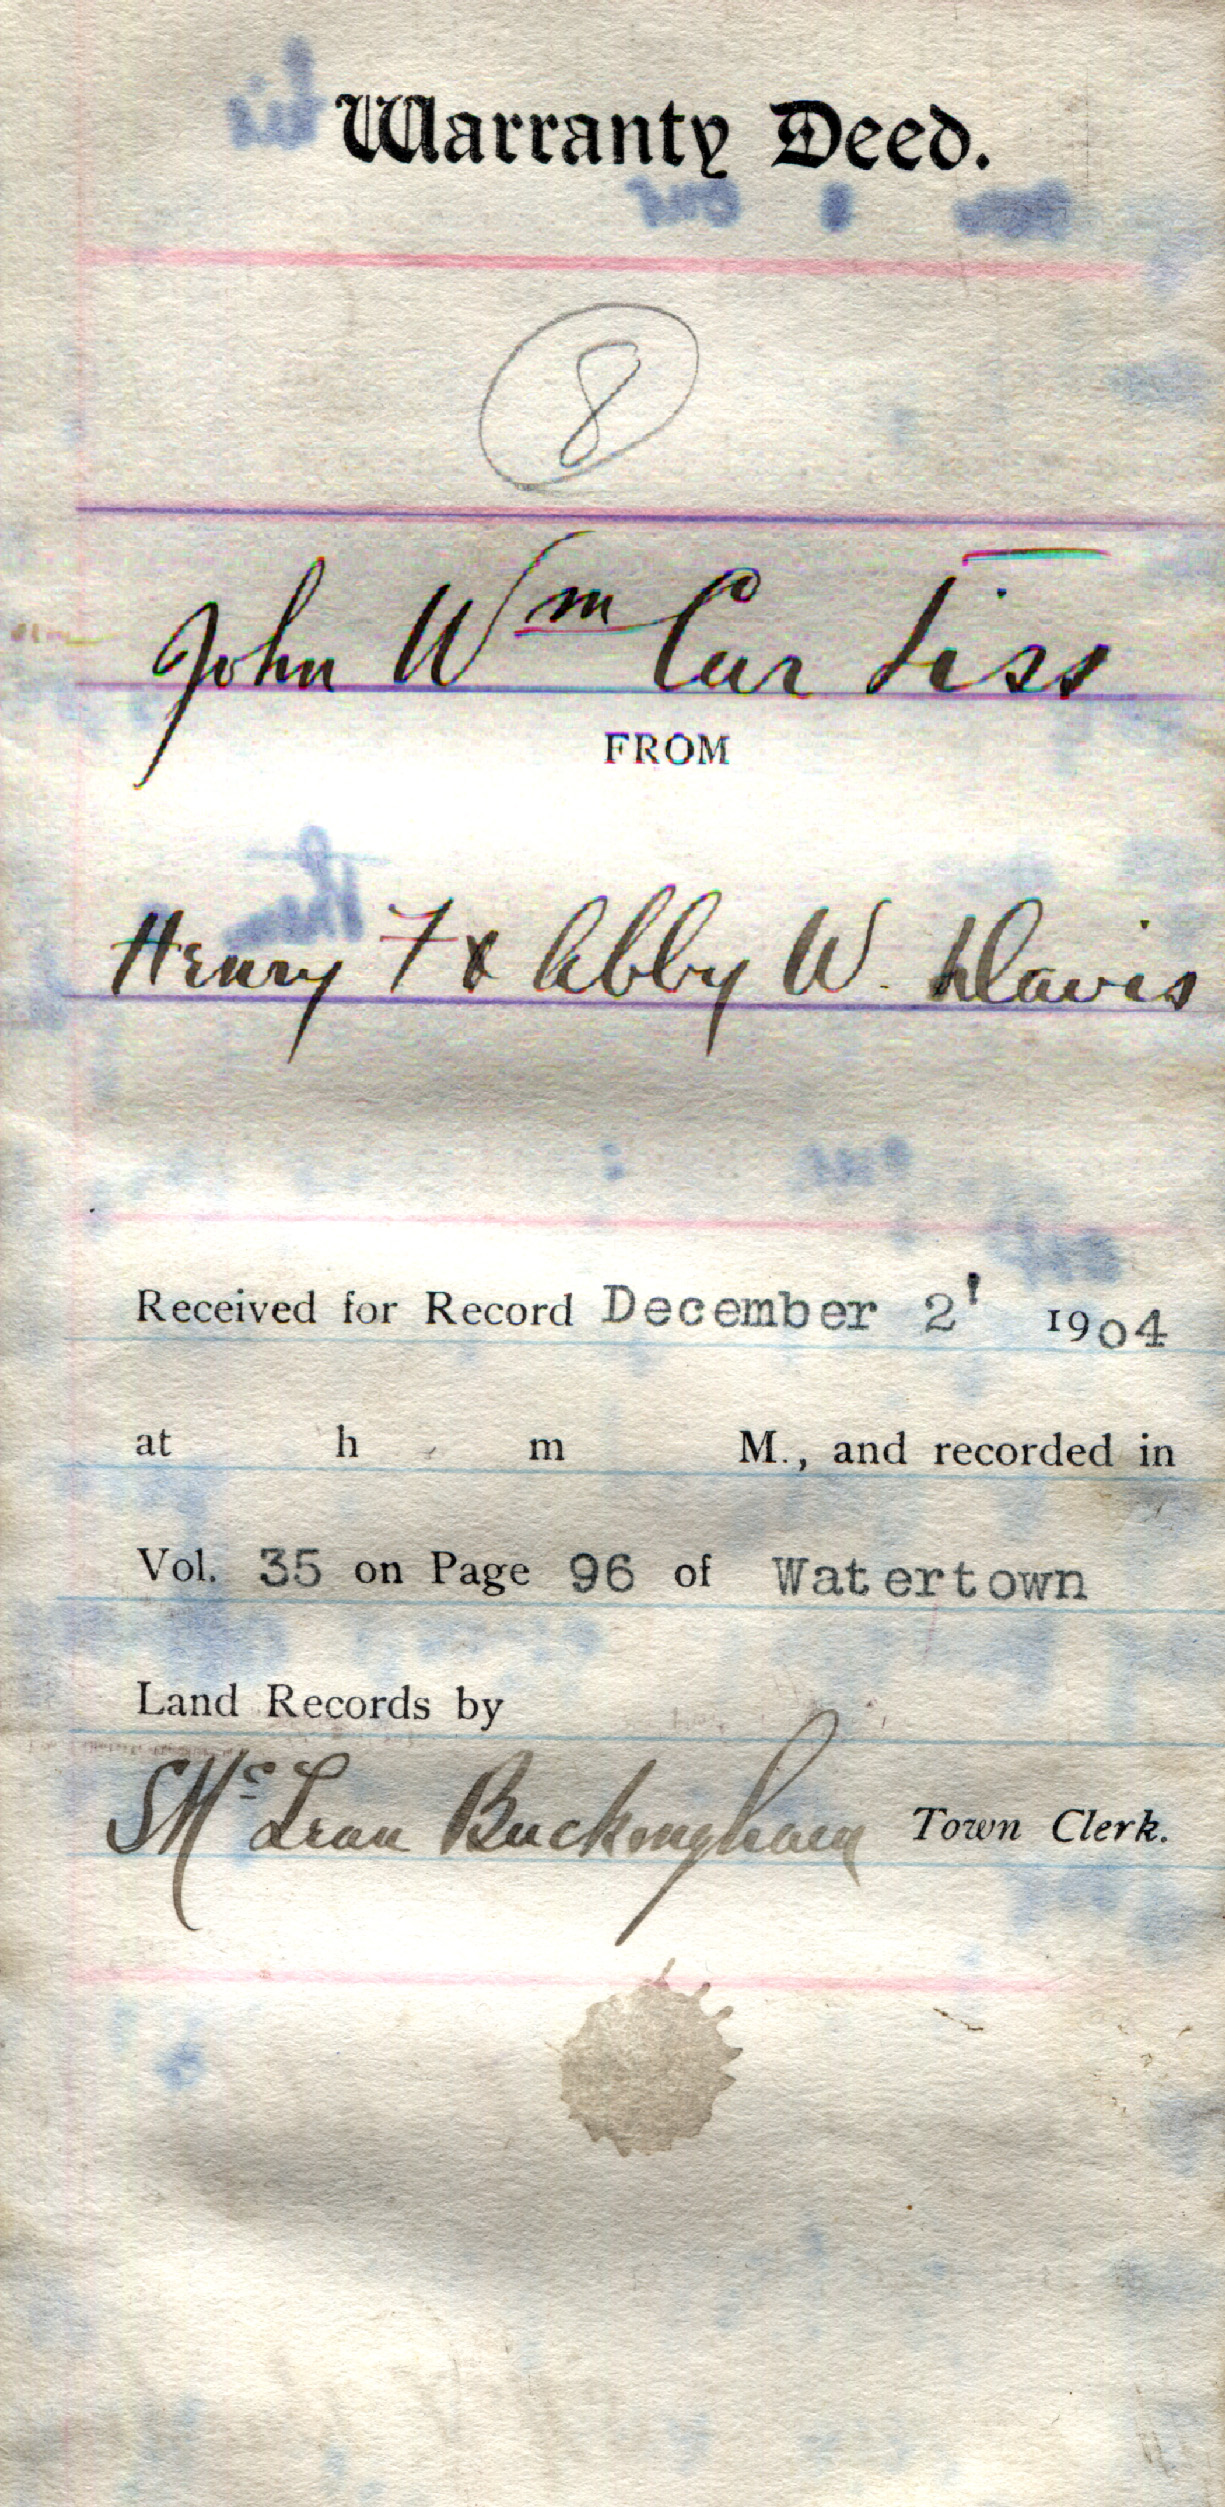 Warranty Deed.
8
John Wm Curtiss
FROM
Henry F & Abby W. Davis
Received for Record December 2' 1904
at h m M., and recorded in
Vol. 35 on Page 96 of Watertown
Land Records by
S Mc Lean Buckingham Town Clerk.